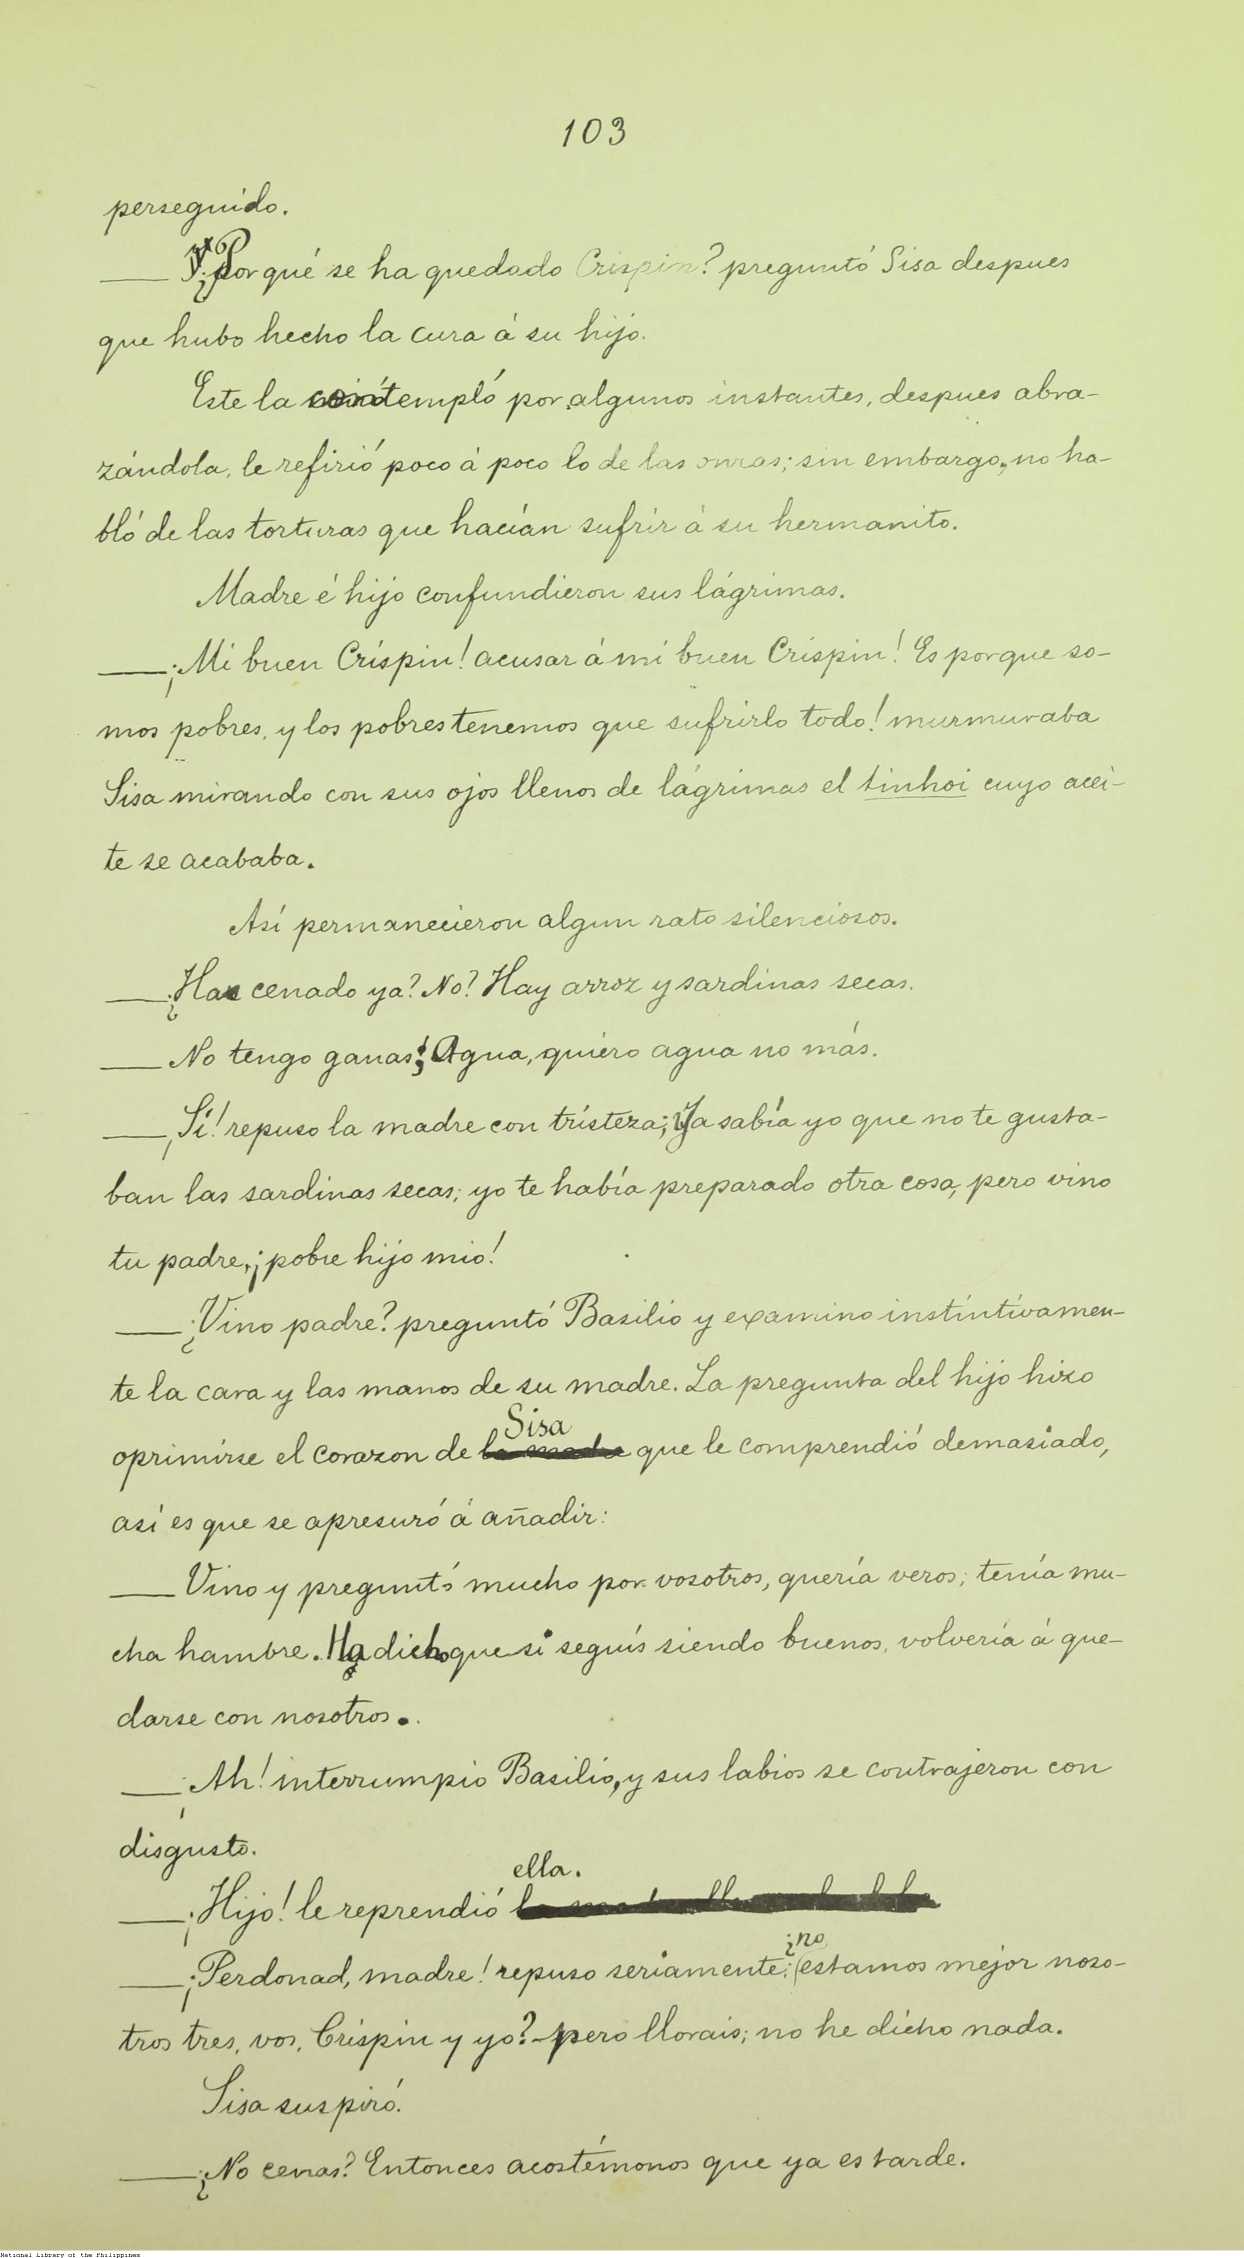 103
perseguido.
— ¿Y Por qué se ha quedado Crispin? preguntó Sisa despues
que hubo hecho la cura á su hijo.
Este la contempló por algunos instantes, despues abra-
zándola, le refirió poco á poco lo de las onzas; sin embargo, no ha-
bló de las torturas que hacían sufrir á su hermanito.
Madre é hijo confundieron sus lágrimas.
— ¡Mi buen Crispin! acusar á mi buen Crispin! Es porque so-
mos pobres, y los pobres tenemos que sufrirlo todo! murmuraba
Sisa mirando con sus ojos llenos de lágrimas el tinhoi cuyo acei-
te se acababa.
Así permanecieron algun rato silenciosos.
— ¿Has cenado ya? No? Hay arroz y sardinas secas.
— No tengo ganas; Agua, quiero agua no más.
— ¡Sí! repuso la madre con tristeza; Ya sabía yo que no te gusta-
ban las sardinas secas; yo te había preparado otra cosa, pero vino
tu padre, ¡pobre hijo mio!
— ¿Vino padre? preguntó Basilio y examino instintivamen-
te la cara y las manos de su madre. La pregunta del hijo hizo
oprimirse el corazon de Sisa que le comprendió demasiado,
así es que se apresuró á añadir:
— Vino y preguntó mucho por vosotros, quería veros; tenía mu-
cha hambre. Ha dicho que si seguís siendo buenos, volvería á que-
darse con nosotros.
— ¡Ah! interrumpio Basilio, y sus labios se contrajeron con
disgusto.
— ¡Hijo! le reprendió ella.
— ¡Perdonad, madre! repuso seriamente: ¿no estamos mejor noso-
tros tres, vos, Crispin y yo? - pero llorais; no he dicho nada.
Sisa suspiró.
— ¿No cenas? Entonces acostémonos que ya es tarde.
National Library of the Philippines